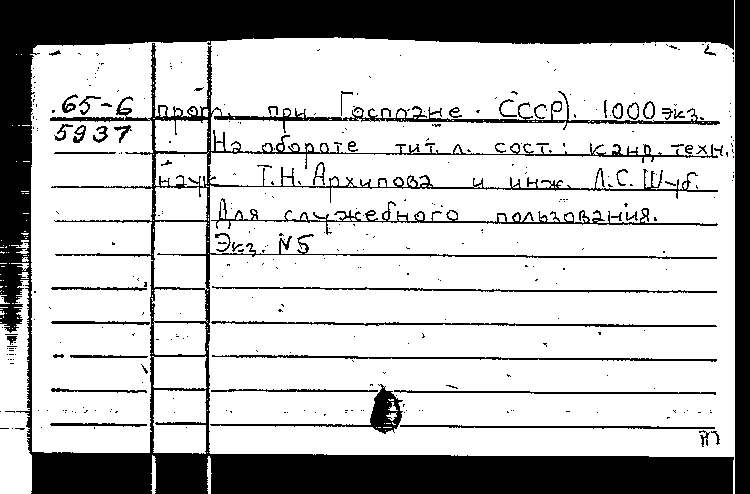 2
65-6 прогр. при Госплане СССР). 1000 экз.
5937 На обороте тит. л. сост.: канд. техн.
наук Т.Н. Архипова и инж. Л.С. Шуб.
Для служебного пользования.
Экз. N5